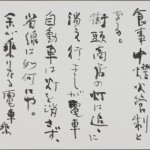 食事中燈火管制と
なる。
街頭商店の灯は速に
消え行きしが電車
自動車は灯を消さず、
省線は如何にや。
余が乗りたる電車